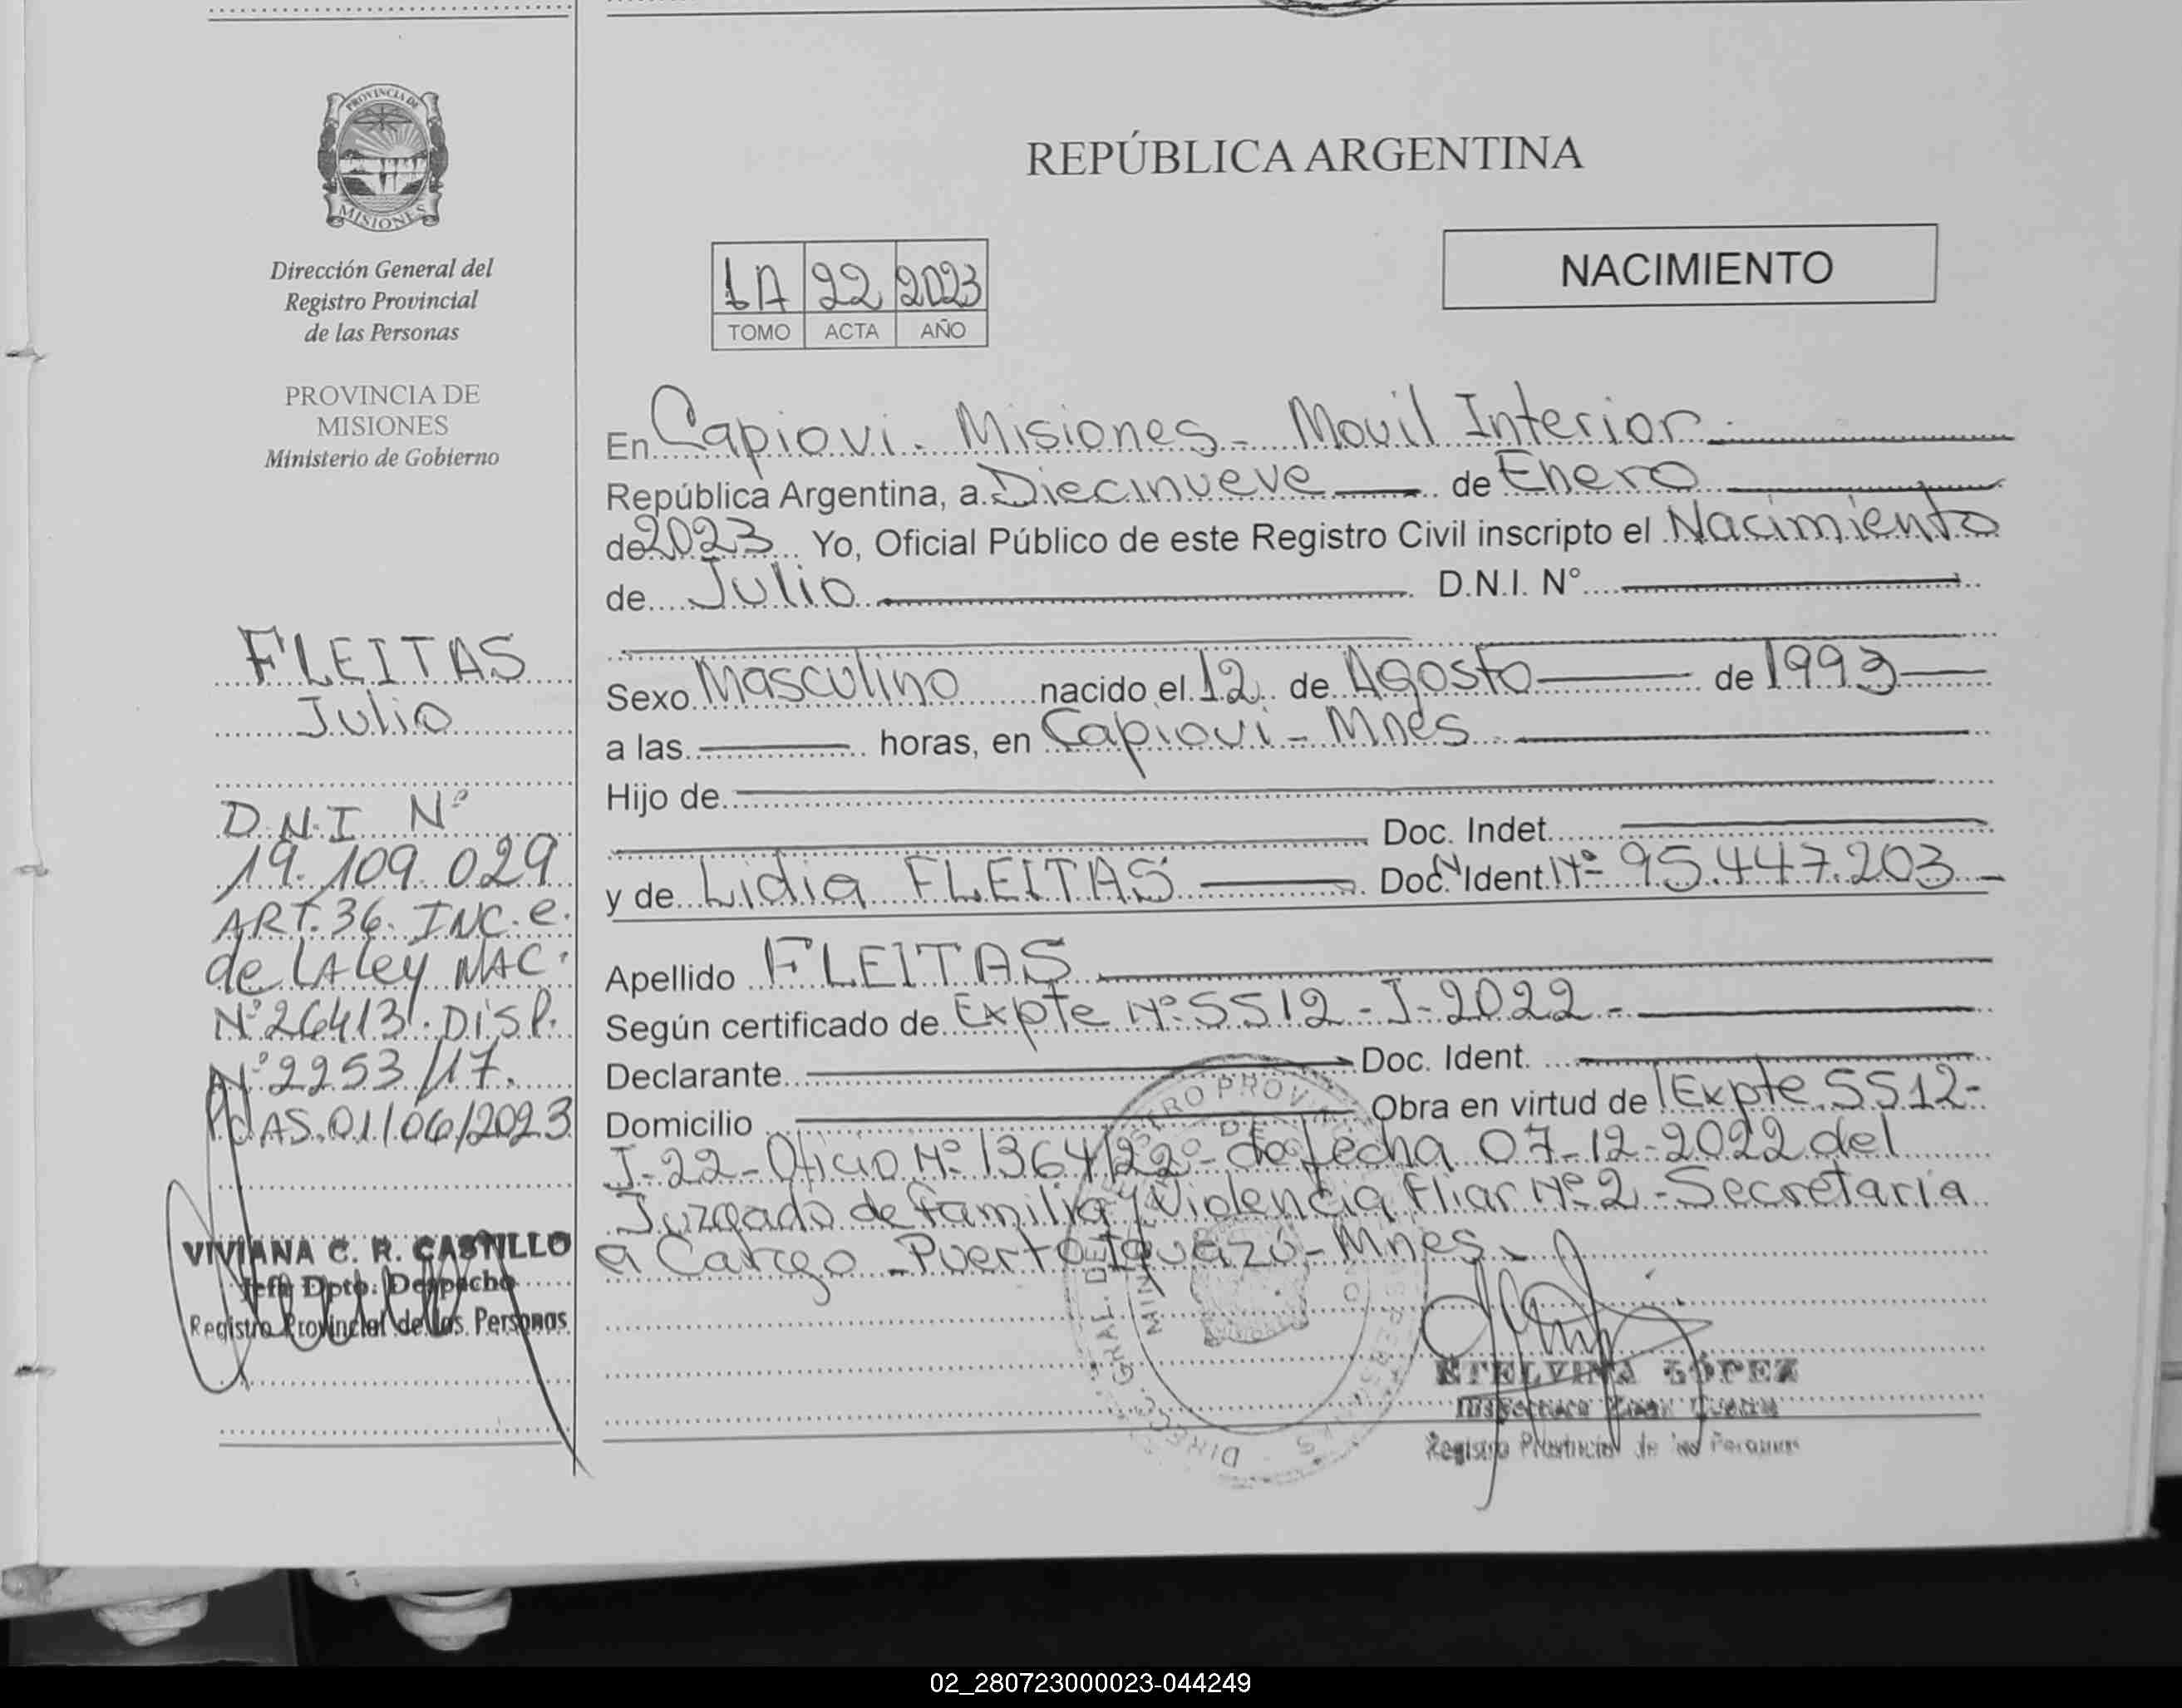 PROVINCIA DE
MISIONES
Dirección General del
Registro Provincial
de las Personas
PROVINCIA DE
MISIONES
Ministerio de Gobierno
FLEITAS
Julio
D.N.I Nº
19.109.029
ART. 36. INC. e.
de LA Ley NAC.
Nº 26413. DISP.
Nº 2253/17.
PdAS. 01/06/2023
VIVIANA C. R. CASTILLO
Jefe Dpto. Despacho
Registro Provincial de las Personas
REPÚBLICA ARGENTINA
1A 22 2023
TOMO ACTA AÑO
NACIMIENTO
En Capiovi - Misiones - Movil Interior
República Argentina, a Diecinueve de Enero
de 2023 Yo, Oficial Público de este Registro Civil inscripto el Nacimiento
de Julio D.N.I. N°
Sexo Masculino nacido el 12 de Agosto de 1993
a las horas, en Capiovi - Mnes
Hijo de
Doc. Indet.
y de Lidia FLEITAS Doc. Ident. Nº 95.447.203
Apellido FLEITAS
Según certificado de Expte Nº 5512 - I - 2022 -
Declarante Doc. Ident.
Domicilio Obra en virtud de Expte 5512-
I-22- Oficio Nº 1364/22 - de fecha 07-12-2022 del
Juzgado de familia y Violencia Fliar Nº 2 - Secretaria
a Cargo - Puerto Iguazú - Mnes -
ETELVINA LÓPEZ
Registro Provincial de las Personas
02_280723000023-044249